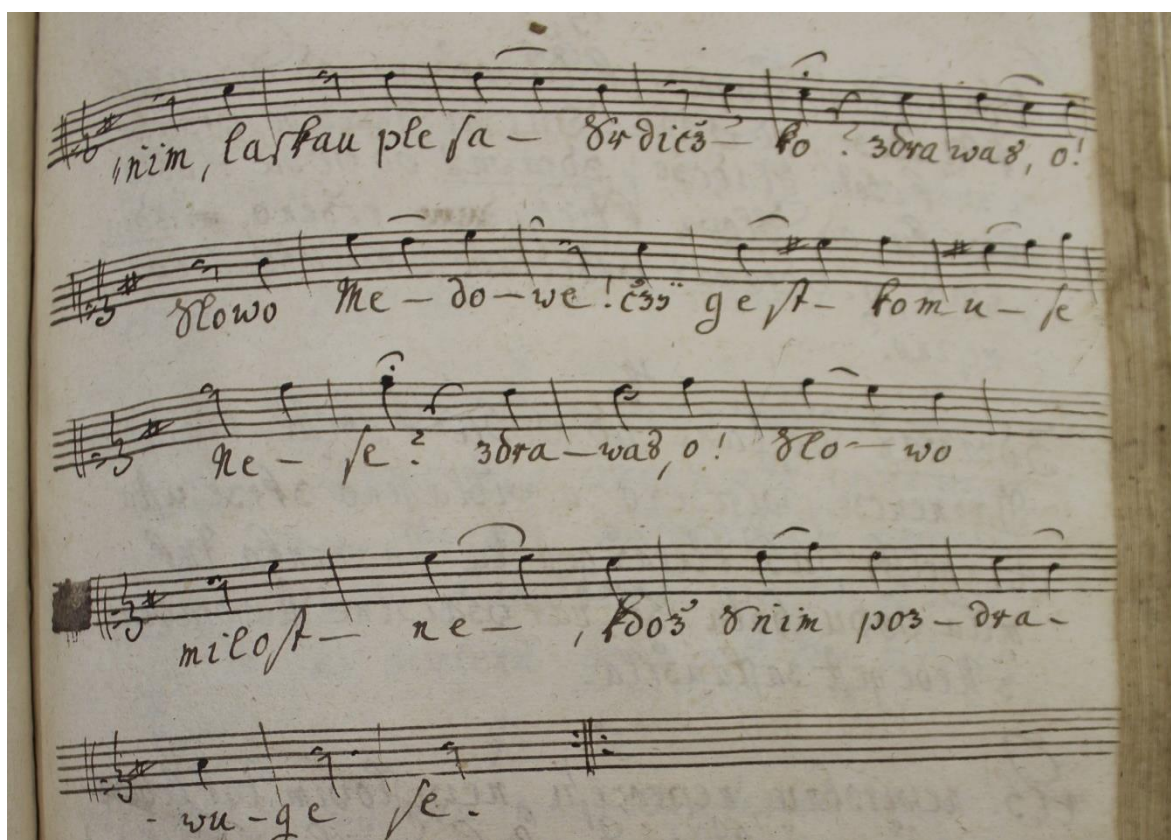 nim, laſkau ple ſa – Srdicž – ko? zdrawas, o!
Slowo Me – do – we! čzÿ geſt – komu – ſe
Ne – ſe? zdra – was, o! Slo – wo
miloſt – ne – , kdož Snim poz – dra –
- wu – ge ſe.